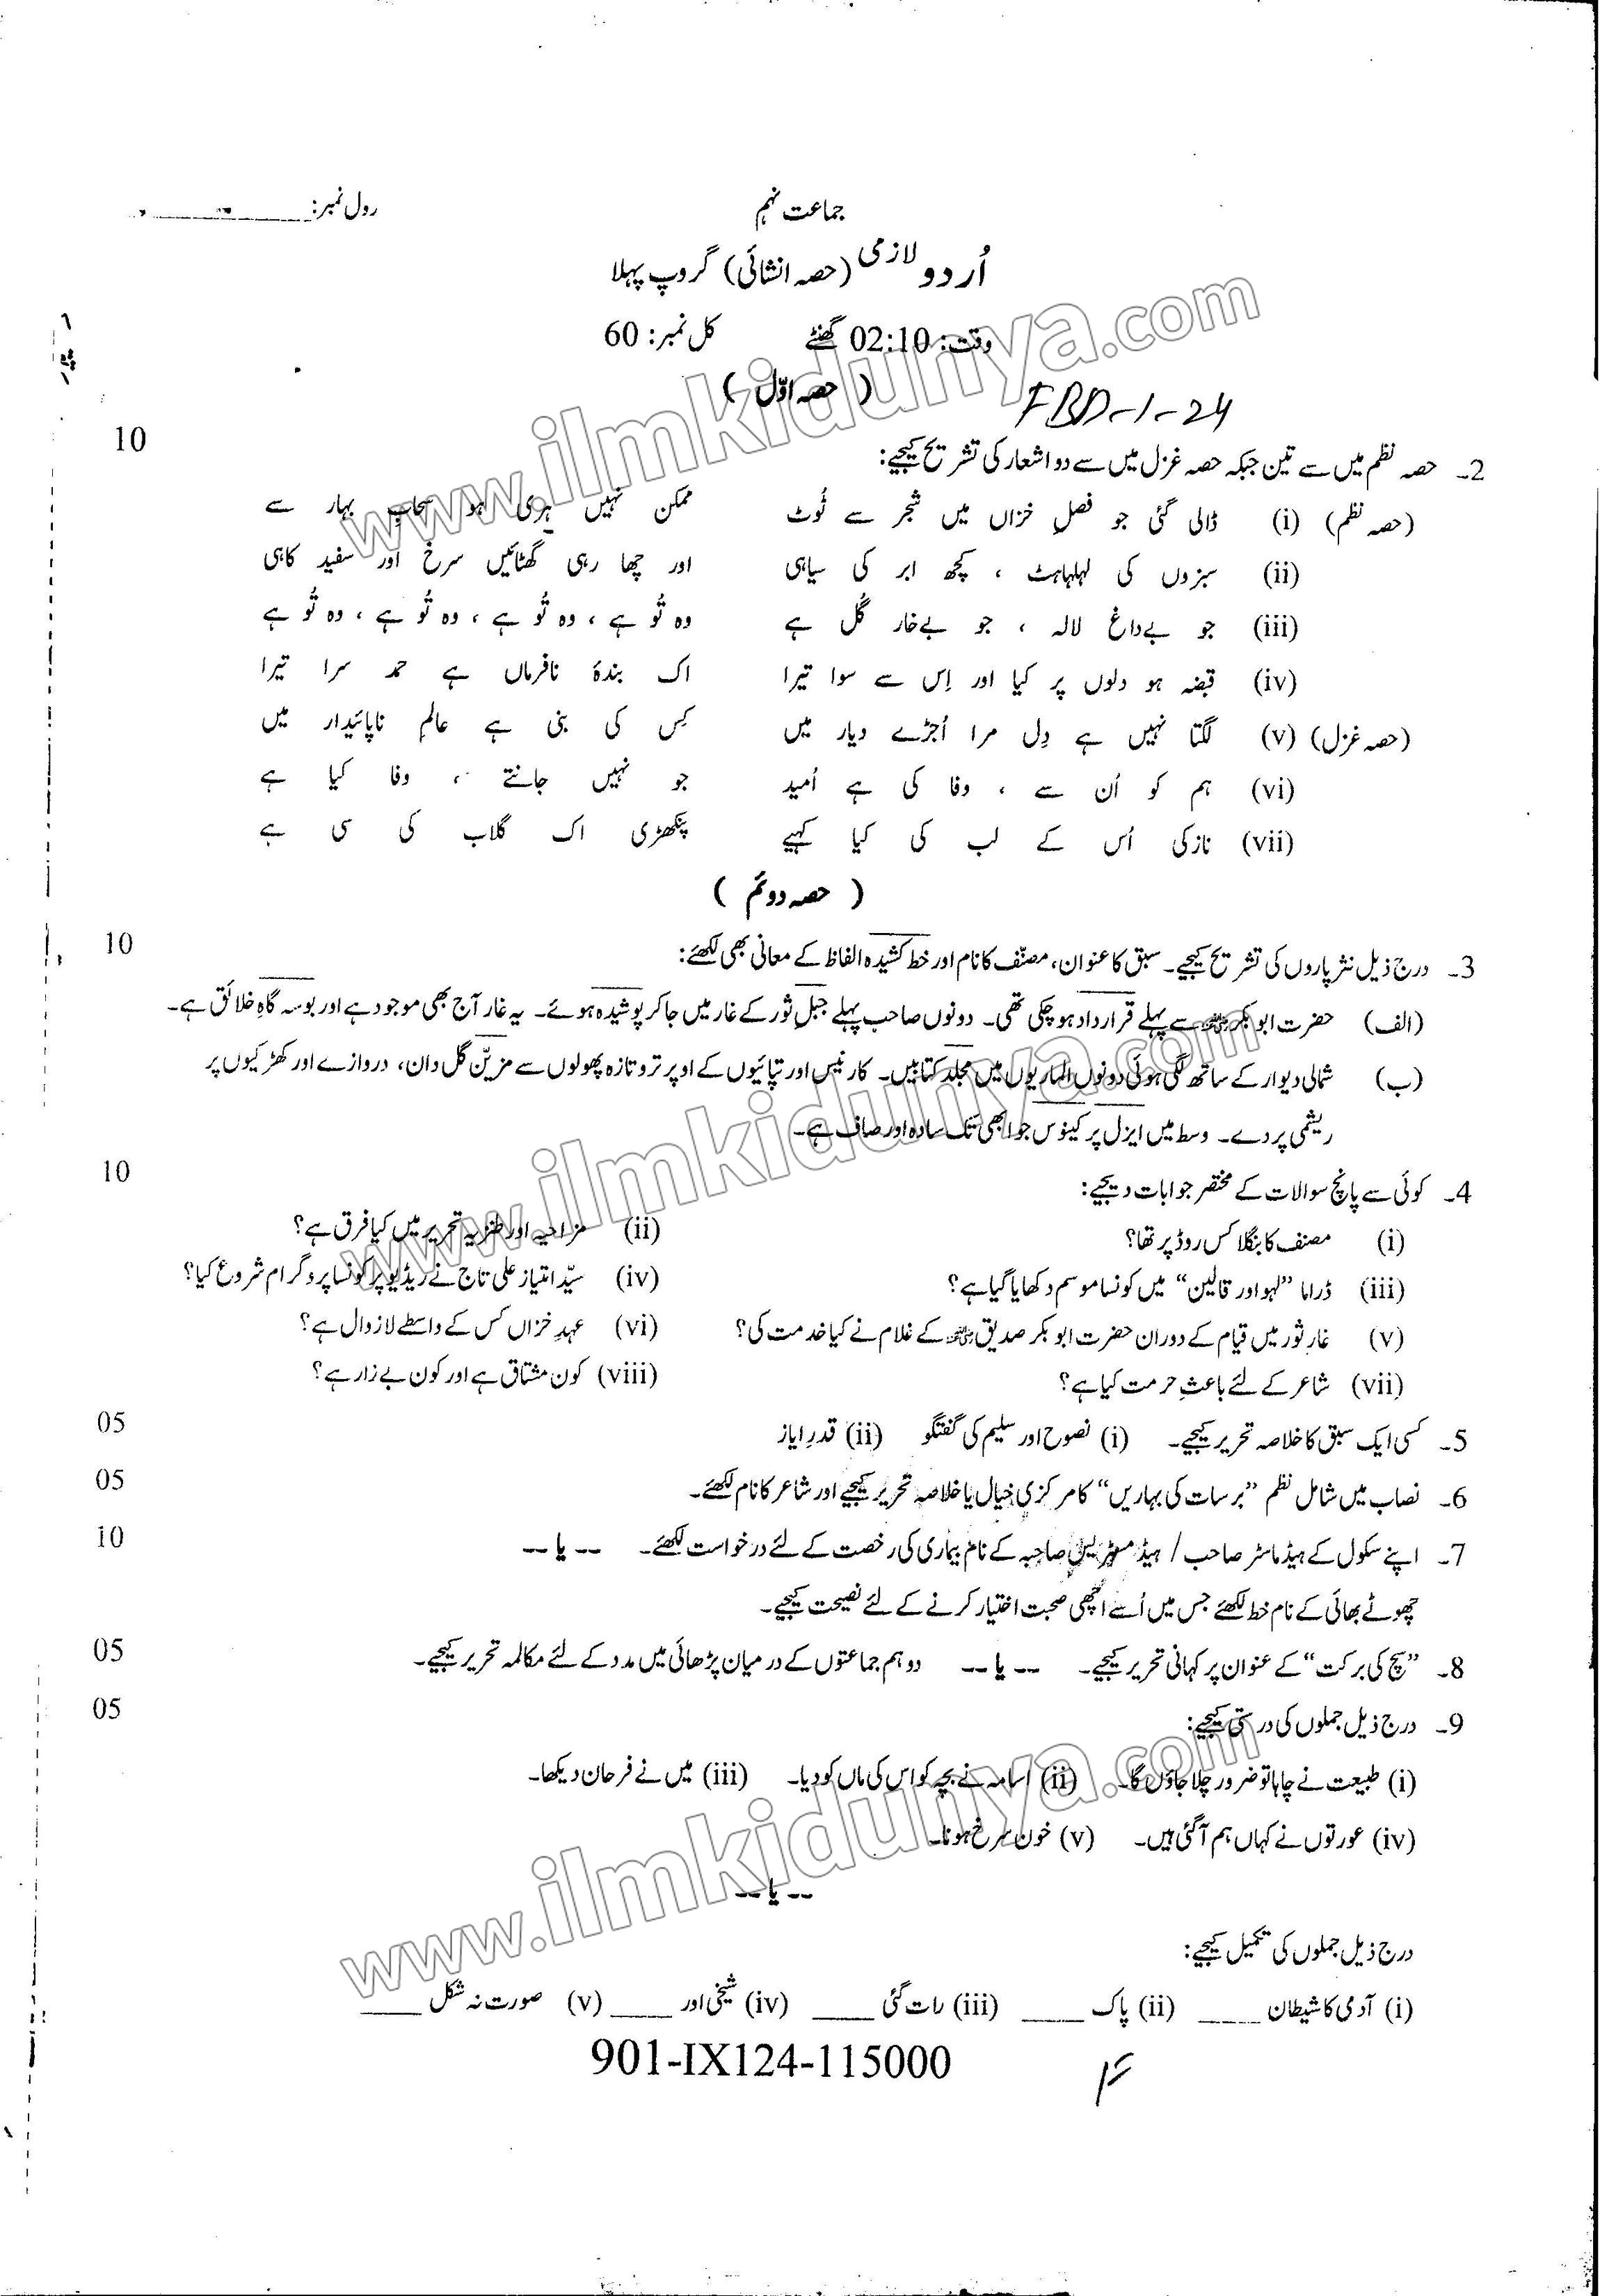 جماعت نہم
رول نمبر:
اُردو لازمی (حصہ انشائی) گروپ پہلا
وقت: 02:10 گھنٹے کل نمبر: 60
( حصہ اوّل )
FBD-1-24
2۔ حصہ نظم میں سے تین جبکہ حصہ غزل میں سے دو اشعار کی تشریح کیجیے: 10
(حصہ نظم) (i) ڈالی گئی جو فصلِ خزاں میں شجر سے ٹُوٹ ممکن نہیں ہری ہو سحابِ بہار سے
(ii) سبزوں کی لہلہاہٹ ، کچھ ابر کی سیاہی اور چھا رہی گھٹائیں سرخ اور سفید کاہی
(iii) جو بےداغ لالہ ، جو بےخار گُل ہے وہ تُو ہے ، وہ تُو ہے ، وہ تُو ہے ، وہ تُو ہے
(iv) قبضہ ہو دلوں پر کیا اور اِس سے سوا تیرا اک بندۂ نافرماں ہے حمد سرا تیرا
(حصہ غزل) (v) لگتا نہیں ہے دِل مرا اُجڑے دیار میں کِس کی بنی ہے عالمِ ناپائیدار میں
(vi) ہم کو اُن سے ، وفا کی ہے اُمید جو نہیں جانتے ، وفا کیا ہے
(vii) نازکی اُس کے لب کی کیا کہیے پنکھڑی اک گلاب کی سی ہے
( حصہ دوئم )
3۔ درج ذیل نثر پاروں کی تشریح کیجیے۔ سبق کا عنوان، مصنّف کا نام اور خط کشیدہ الفاظ کے معانی بھی لکھئے: 10
(الف) حضرت ابوبکرؓ سے پہلے قرارداد ہو چکی تھی۔ دونوں صاحب پہلے جبلِ ثور کے غار میں جا کر پوشیدہ ہوئے۔ یہ غار آج بھی موجود ہے اور بوسہ گاہِ خلائق ہے۔
(ب) شمالی دیوار کے ساتھ لگی ہوئی دونوں الماریوں میں مجلد کتابیں۔ کارنیس اور تپائیوں کے اوپر تروتازہ پھولوں سے مزیّن گل دان، دروازے اور کھڑکیوں پر
ریشمی پردے۔ وسط میں ایزل پر کینوس جو ابھی تک سادہ اور صاف ہے۔
4۔ کوئی سے پانچ سوالات کے مختصر جوابات دیجیے: 10
(i) مصنف کا بنگلا کس روڈ پر تھا؟ (ii) مزاحیہ اور طنزیہ تحریر میں کیا فرق ہے؟
(iii) ڈراما ”لہو اور قالین“ میں کونسا موسم دکھایا گیا ہے؟ (iv) سیّد امتیاز علی تاج نے ریڈیو پر کونسا پروگرام شروع کیا؟
(v) غارِ ثور میں قیام کے دوران حضرت ابوبکر صدیقؓ کے غلام نے کیا خدمت کی؟ (vi) عہدِ خزاں کس کے واسطے لازوال ہے؟
(vii) شاعر کے لئے باعثِ حرمت کیا ہے؟ (viii) کون مشتاق ہے اور کون بے زار ہے؟
5۔ کسی ایک سبق کا خلاصہ تحریر کیجیے۔ (i) نصوح اور سلیم کی گفتگو (ii) قدرِ ایاز 05
6۔ نصاب میں شامل نظم ”برسات کی بہاریں“ کا مرکزی خیال یا خلاصہ تحریر کیجیے اور شاعر کا نام لکھئے۔ 05
7۔ اپنے سکول کے ہیڈ ماسٹر صاحب / ہیڈ مسٹریس صاحبہ کے نام بیماری کی رخصت کے لئے درخواست لکھئے۔ -- یا -- 10
چھوٹے بھائی کے نام خط لکھئے جس میں اُسے اچھی صحبت اختیار کرنے کے لئے نصیحت کیجیے۔
8۔ ”سچ کی برکت“ کے عنوان پر کہانی تحریر کیجیے۔ -- یا -- دو ہم جماعتوں کے درمیان پڑھائی میں مدد کے لئے مکالمہ تحریر کیجیے۔ 05
9۔ درج ذیل جملوں کی درستی کیجیے: 05
(i) طبیعت نے چاہا تو ضرور چلا جاؤں گا۔ (ii) اسامہ نے بچہ کو اس کی ماں کو دیا۔ (iii) میں نے فرحان دیکھا۔
(iv) عورتوں نے کہاں ہم آ گئی ہیں۔ (v) خون سرخ ہونا۔
-- یا --
درج ذیل جملوں کی تکمیل کیجیے:
(i) آدمی کا شیطان ____ (ii) پاک ____ (iii) رات گئی ____ (iv) شیخی اور ____ (v) صورت نہ شکل ____
901-IX124-115000
www.ilmkidunya.com
www.ilmkidunya.com
www.ilmkidunya.com